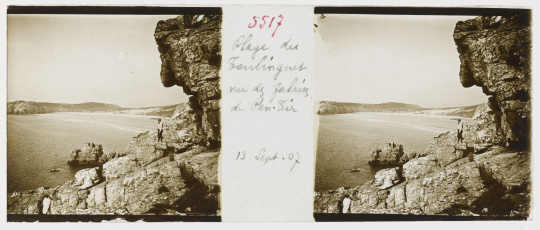 5517
Plage du
Toulinguet
vue des falaises
de Pen-Hir
13 Sept. 07